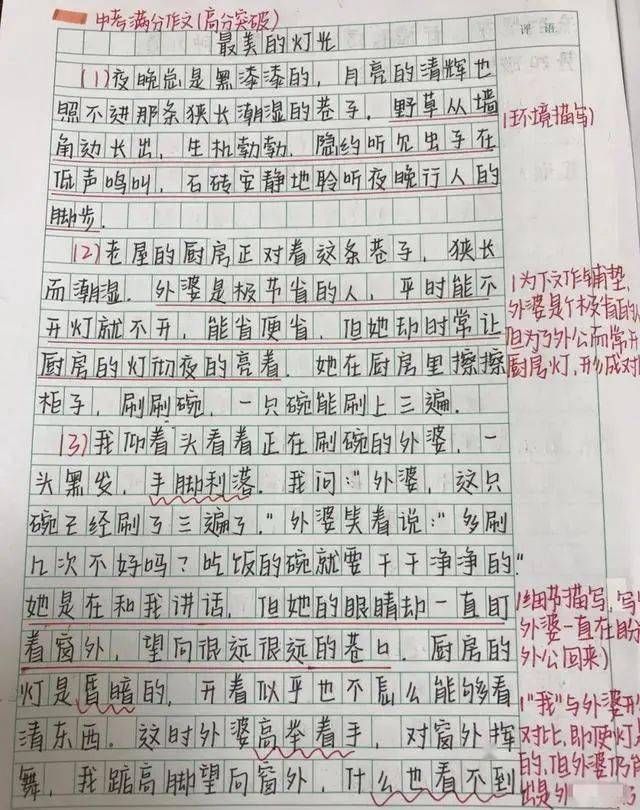 中考满分作文(高分突破)
评语
最美的灯光
(1)夜晚总是黑漆漆的，月亮的清辉也
照不进那条狭长潮湿的巷子，野草从墙
角边长出，生机勃勃，隐约听见虫子在
低声鸣叫，石砖安静地聆听夜晚行人的
脚步.
(环境描写)
(2)老屋的厨房正对着这条巷子，狭长
而潮湿.外婆是极节省的人，平时能不
开灯就不开，能省便省，但她却时常让
厨房的灯彻夜的亮着.她在厨房里擦擦
柜子，刷刷碗，一只碗能刷上三遍.
(为下文作铺垫,
外婆是个极省的
但为了外公而常开
厨房灯,形成对
(3)我仰着头看着正在刷碗的外婆，一
头黑发，手脚利落.我问:"外婆，这只
碗已经刷了三遍了."外婆笑着说:"多刷
几次不好吗？吃饭的碗就要干干净净的."
她是在和我讲话，但她的眼睛却一直盯
着窗外，望向很远很远的巷口.厨房的
灯是昏暗的，开着似乎也不怎么能够看
清东西.这时外婆高举着手，对窗外挥
舞，我踮高脚望向窗外，什么也看不到
(细节描写,写
外婆一直在盼
外公回来)
("我"与外婆形
对比,即便灯
的,但外婆仍
出是外